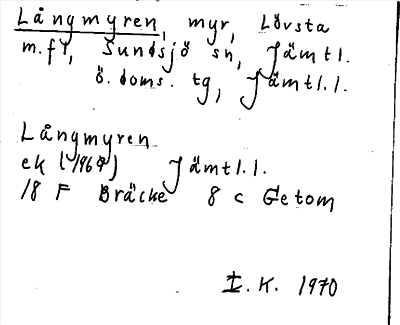 Långmyren, myr, Lövsta
m.fl, Sundsjö sn, Jämtl.
ö. doms. tg, Jämtl.l.
Långmyren
ek (1969) Jämtl.l.
18 F Bräcke 8 c Getom
I.K. 1970